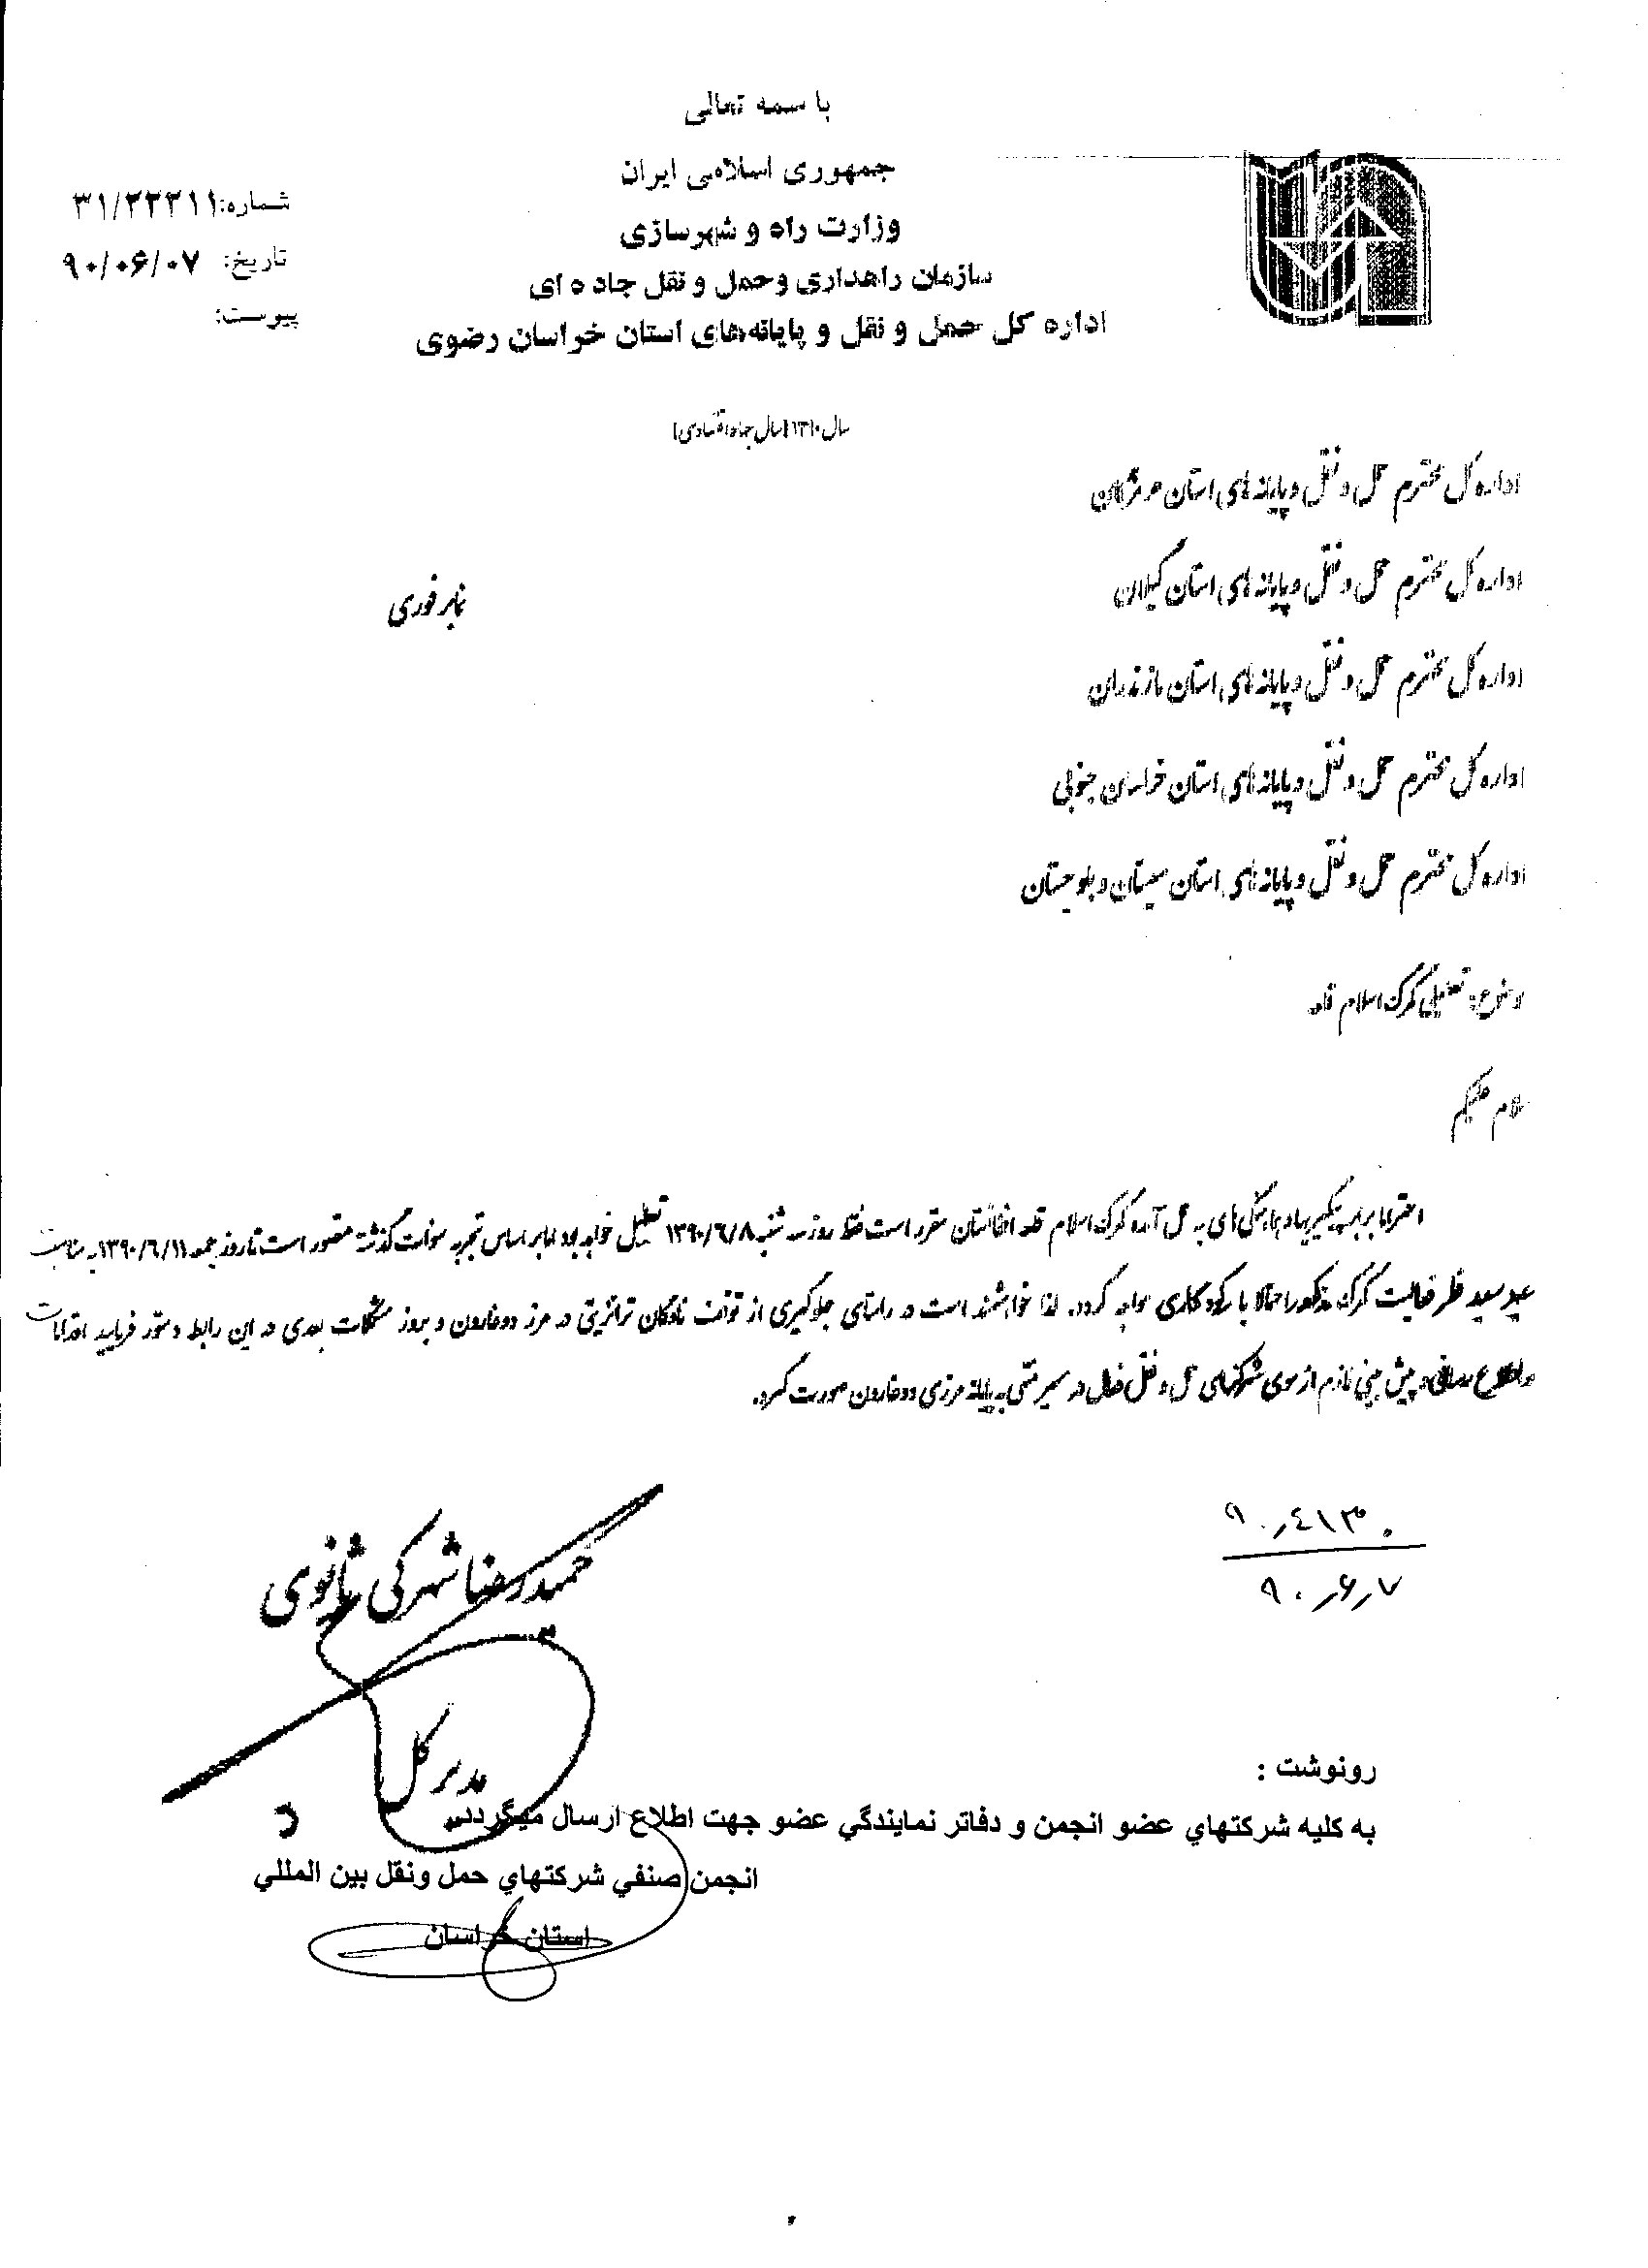 با سمه تعالی
جمهوری اسلامی ایران
وزارت راه و شهرسازی
سازمان راهداری و حمل و نقل جاده ای
اداره کل حمل و نقل و پایانه‌های استان خراسان رضوی
شماره: ۳۱/۲۲۳۱۱
تاریخ: ۹۰/۰۶/۰۷
پیوست:
سال ۱۳۹۰ (سال جهاد اقتصادی)
اداره کل محترم حمل و نقل و پایانه های استان هرمزگان
اداره کل محترم حمل و نقل و پایانه های استان گیلان
نمابر فوری
اداره کل محترم حمل و نقل و پایانه های استان مازندران
اداره کل محترم حمل و نقل و پایانه های استان خراسان جنوبی
اداره کل محترم حمل و نقل و پایانه های استان سیستان و بلوچستان
موضوع: تعطیلی گمرک اسلام قلعه
سلام علیکم
احتراما برابر پیگیریها و هماهنگی های به عمل آمده گمرک اسلام قلعه افغانستان مقرر است فقط روز سه شنبه ۱۳۹۰/۶/۸ تعطیل خواهد بود اما بر اساس تجربه سنوات گذشته متصور است تا روز جمعه ۱۳۹۰/۶/۱۱ به مناسبت
عید سعید فطر فعالیت گمرک مذکور احتمالا با رکود کاری مواجه گردد. لذا خواهشمند است در راستای جلوگیری از توقف ناوگان ترانزیتی در مرز دوغارون و بروز مشکلات بعدی در این رابطه دستور فرمایید اقدامات
و اطلاع رسانی و پیش بینی لازم از سوی شرکتهای حمل و نقل فعال در مسیر منتهی به پایانه مرزی دوغارون صورت گیرد.
۹۰٫٤۱۳۰
۹۰٫۶٫۷
حمیدرضا شهرکی ثانوی
مدیر کل
رونوشت :
به کلیه شرکتهاي عضو انجمن و دفاتر نمایندگي عضو جهت اطلاع ارسال میگردد.
انجمن صنفي شرکتهاي حمل ونقل بین المللي
استان خراسان